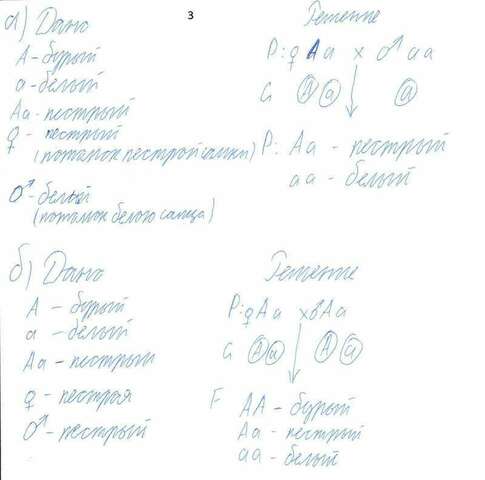 3
а) Дано
А - бурый
а - белый
Аа - пестрый
♀ - пестрый
(потомок пестрой самки)
♂ - белый
(потомок белого самца)
Решение
Р: ♀ Аа х ♂ аа
G А а а
Р: Аа - пестрый
аа - белый
б) Дано
А - бурый
а - белый
Аа - пестрый
♀ - пестрая
♂ - пестрый
Решение
Р: ♀Аа х ♂Аа
G А а А а
F АА - бурый
Аа - пестрый
аа - белый